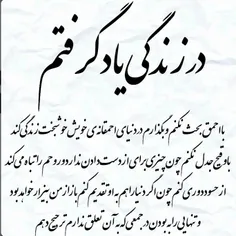 در زندگی یاد گرفتم
با احمق بحث نکنم و بگذارم در دنیای احمقانه‌ی خویش خوشبخت زندگی کند
با وقیح جدل نکنم چون چیزی برای از دست دادن ندارد و روحم را تباه می‌کند
از حسود دوری کنم چون اگر دنیا را هم به او تقدیم کنم باز از من بیزار خواهد بود
و تنهایی را به بودن در جمعی که به آن تعلق ندارم ترجیح دهم